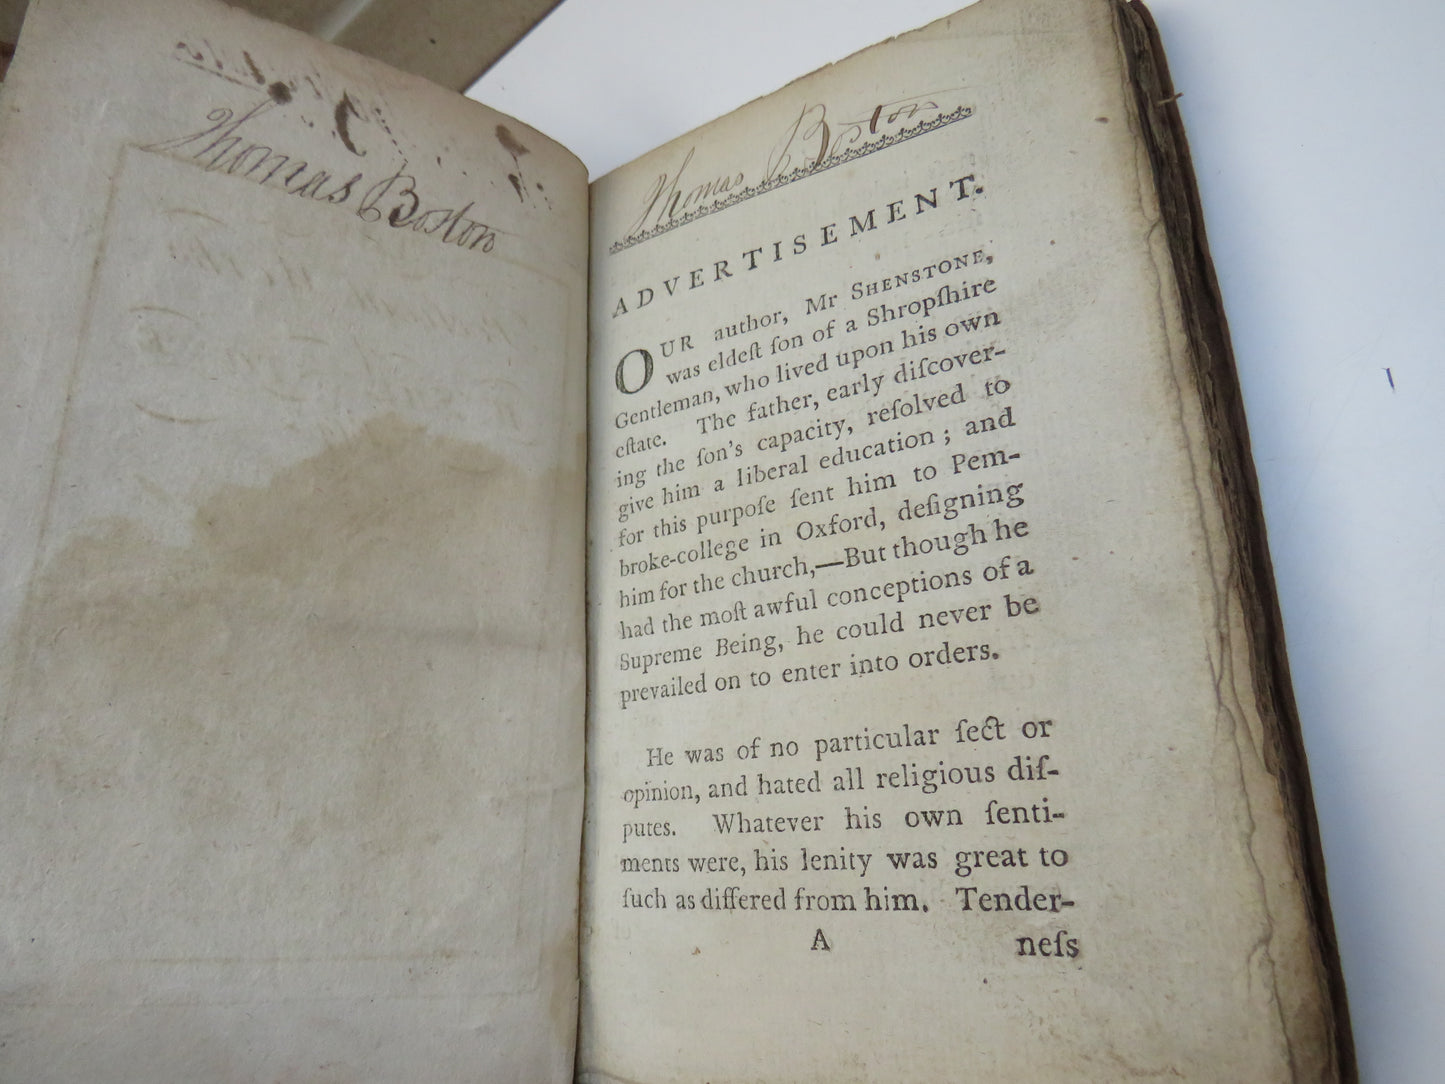 Thomas Boston
Thomas Boston
ADVERTISEMENT.
OUR author, Mr SHENSTONE,
was eldeſt ſon of a Shropſhire
Gentleman, who lived upon his own
eſtate. The father, early diſcover-
ing the ſon's capacity, reſolved to
give him a liberal education; and
for this purpoſe ſent him to Pem-
broke-college in Oxford, deſigning
him for the church,—But though he
had the moſt awful conceptions of a
Supreme Being, he could never be
prevailed on to enter into orders.
He was of no particular ſect or
opinion, and hated all religious diſ-
putes. Whatever his own ſenti-
ments were, his lenity was great to
ſuch as differed from him. Tender-
A neſs